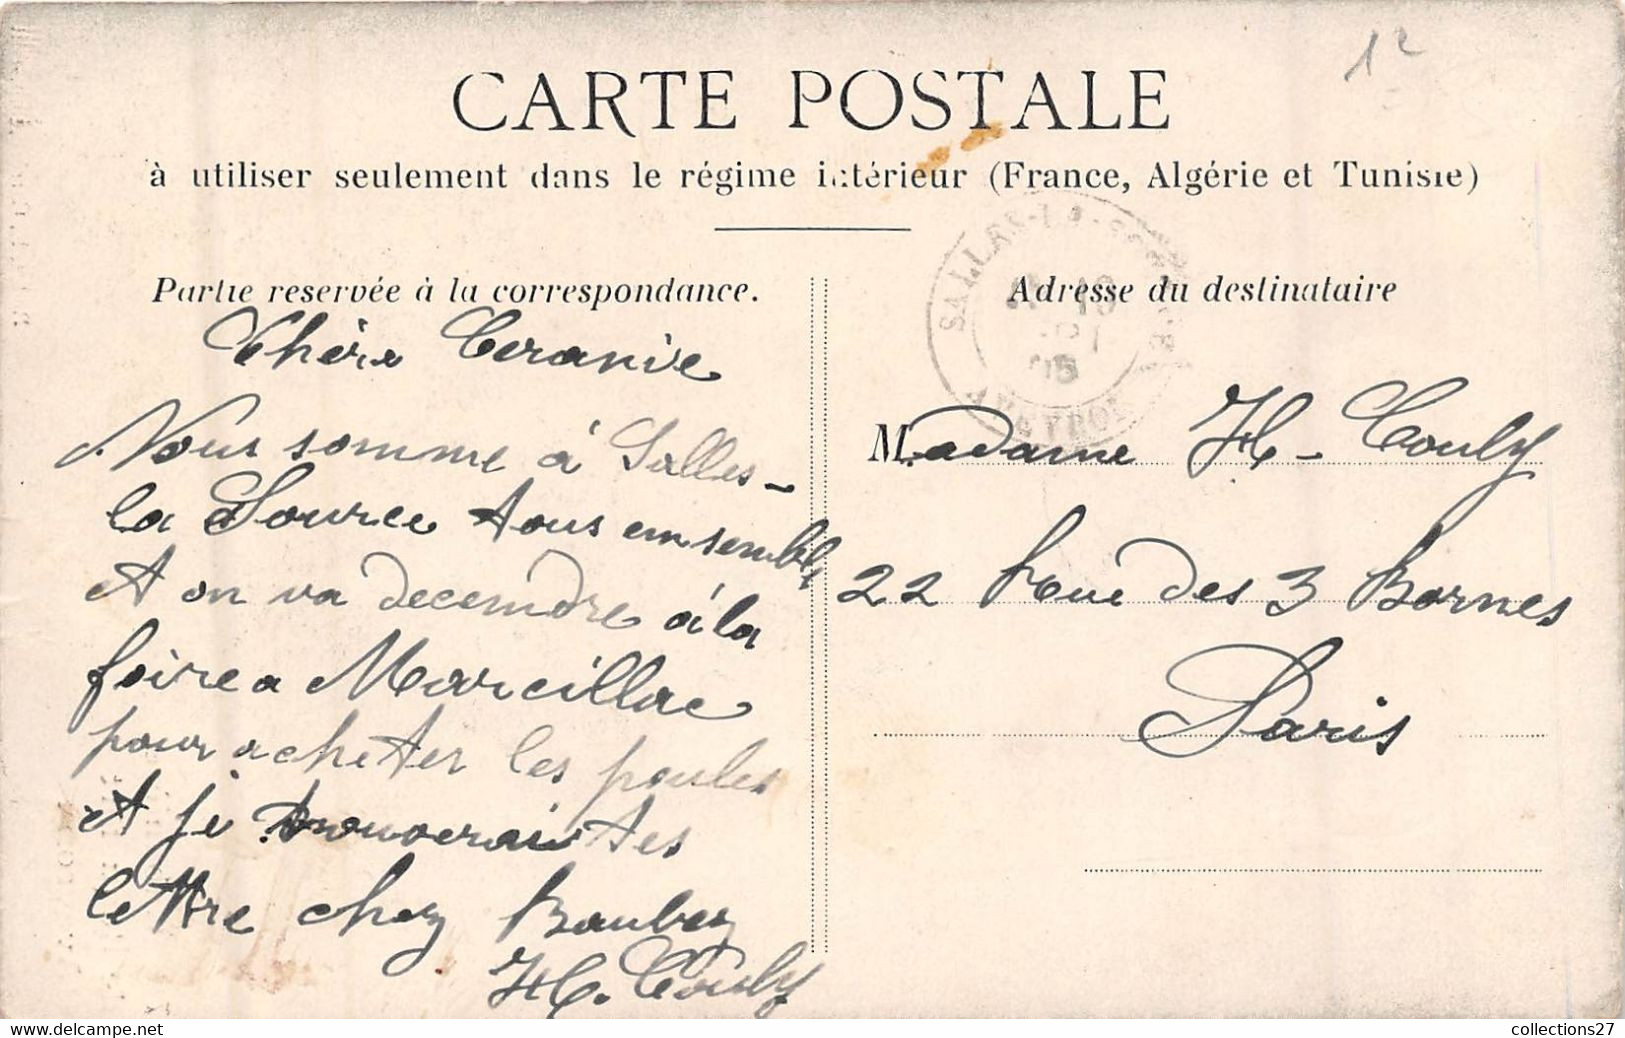 12
CARTE POSTALE
à utiliser seulement dans le régime intérieur (France, Algérie et Tunisie)
Partie reservée à la correspondance.
Chère Ceranie
Nous somme à Salles-
la Source tous emsemble
et on va decemdre à la
foire a Marcillac
pour acheter les poules
et je trouverais tes
lettre chez Baubez
H. Couly
Adresse du destinataire
SALLES-LA-SOURCE
AVEYRON
Madame H - Couly
22 Rue des 3 Bornes
Paris
collections27